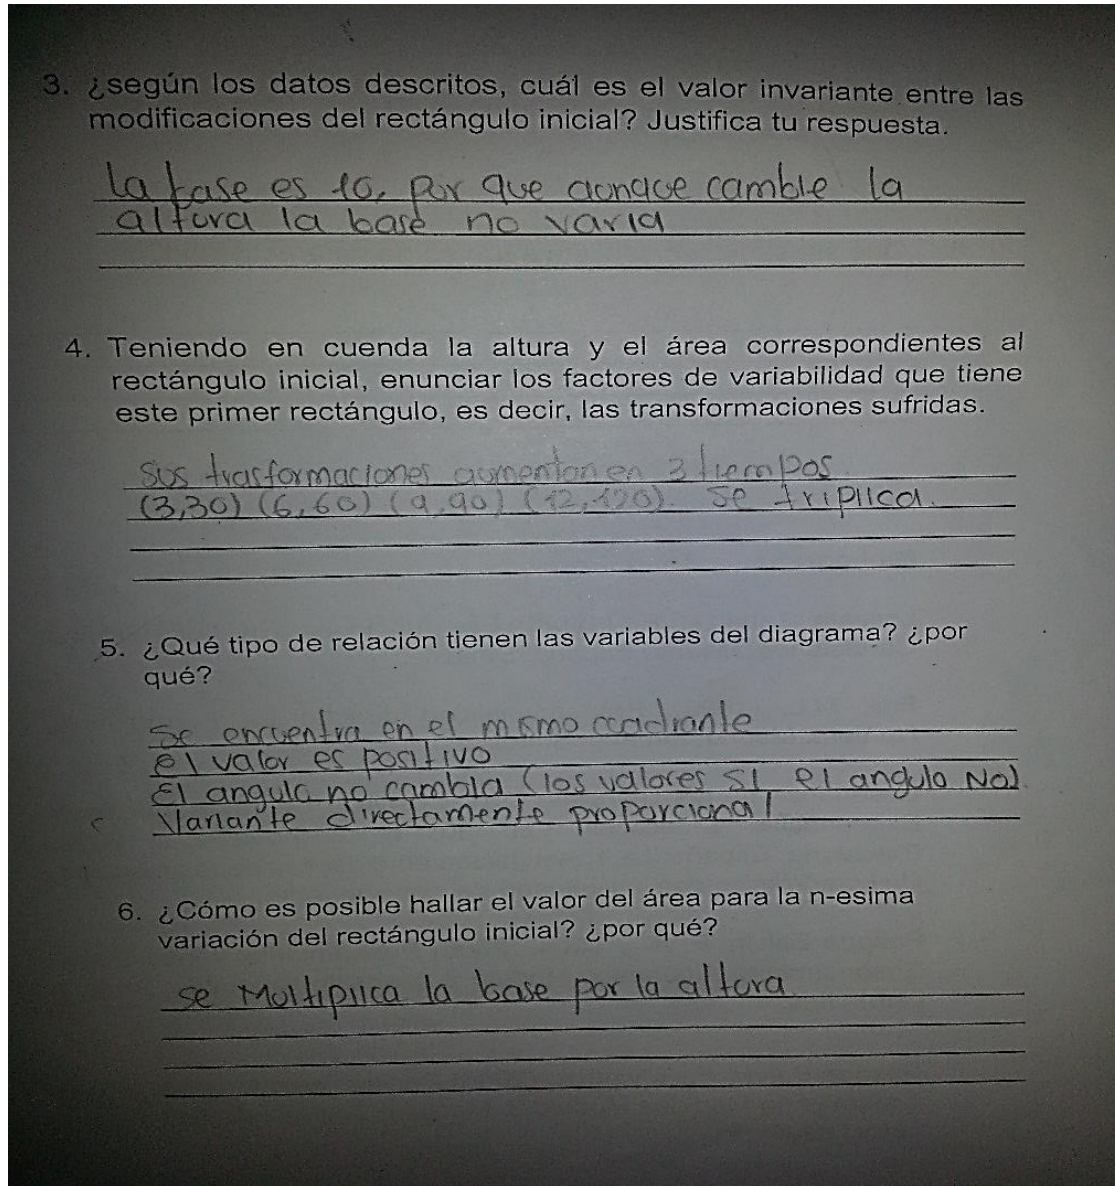 3. ¿según los datos descritos, cuál es el valor invariante entre las
modificaciones del rectángulo inicial? Justifica tu respuesta.
la base es 10, por que aunque cambie la
altura la base no varia
4. Teniendo en cuenda la altura y el área correspondientes al
rectángulo inicial, enunciar los factores de variabilidad que tiene
este primer rectángulo, es decir, las transformaciones sufridas.
Sus trasformaciones aumentan en 3 tiempos
(3,30) (6,60) (9,90) (12,120). Se triplica.
5. ¿Qué tipo de relación tienen las variables del diagrama? ¿por
qué?
Se encuentra en el mismo cuadrante
el valor es positivo
El angulo no cambia (los valores SI el angulo No)
Variante directamente proporcional
6. ¿Cómo es posible hallar el valor del área para la n-esima
variación del rectángulo inicial? ¿por qué?
se Multiplica la base por la altura